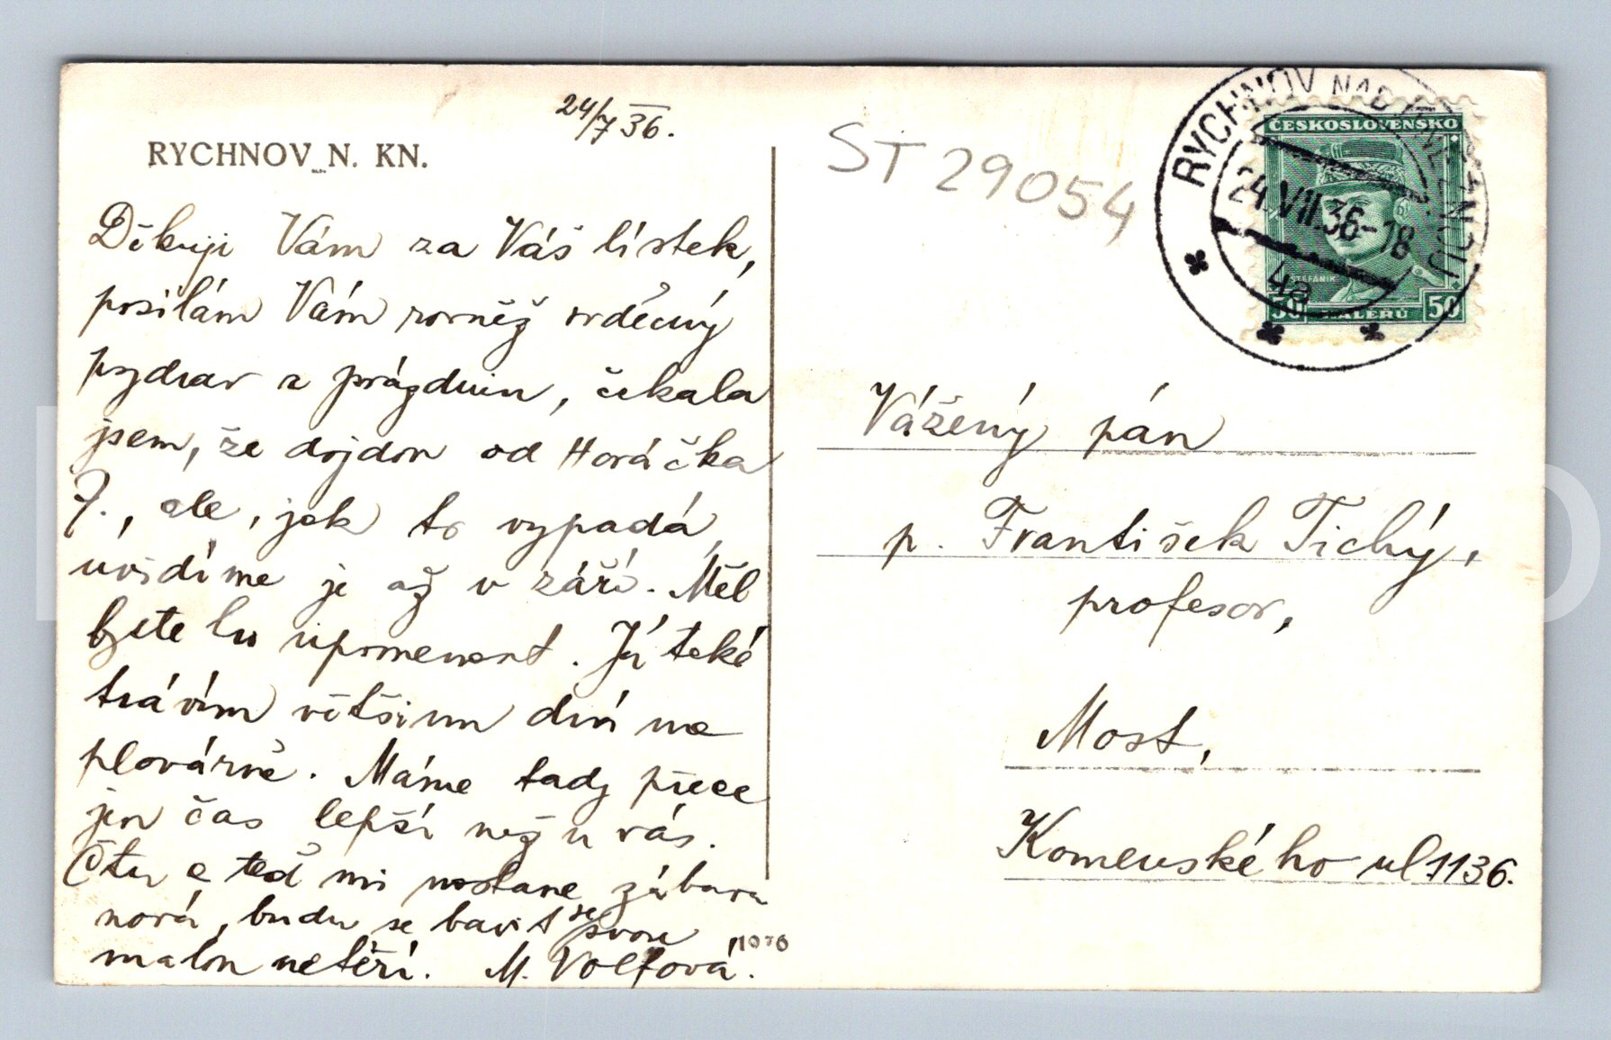 24/7 36.
RYCHNOV N. KN.
Děkuji Vám za Váš lístek,
posílám Vám rovněž srdečný
pozdrav z prázdnin, čekala
jsem, že dojdou od Horáčka
J., ale, jak to vypadá,
uvidíme je až v září. Měl
byste tu upomenout. Já také
trávím většinu dní na
plovárně. Máme tady přece
jen čas lepší než u vás.
Čtu a teď mi nastane zábava
nová, budu se bavit se svou
malou neteří. M. Volfová.
1076
ST 29054
RYCHNOV NAD KNĚŽNOU
24.VIII.36-18
4a
ČESKOSLOVENSKO
ŠTEFÁNIK
50 HALÉŘŮ 50
Vážený pán
p. František Tichý,
profesor,
Most,
Komenského ul 1136.